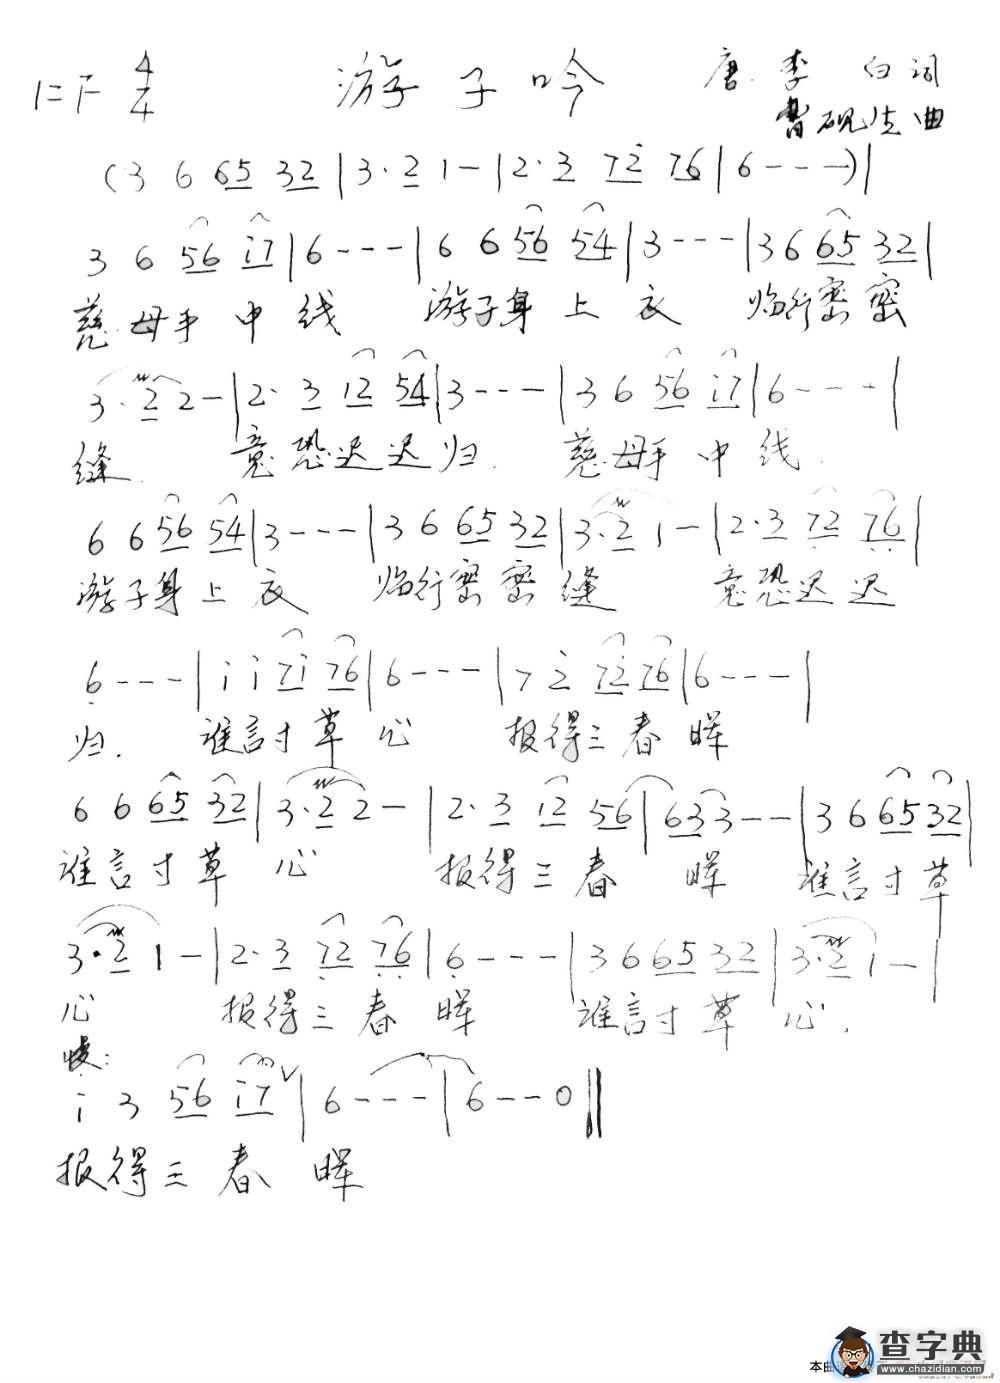 1=F 4/4 游子吟 唐.李白词
砚生曲
(3 6 65 32 | 3·2 1 - | 2·3 72 76 | 6 - - -) |
3 6 56 i7 | 6 - - - | 6 6 56 54 | 3 - - - | 3 6 65 32 |
慈母手中线 游子身上衣 临行密密
3·2 2 - | 2·3 12 54 | 3 - - - | 3 6 56 i7 | 6 - - - |
缝 意恐迟迟归. 慈母手中线.
6 6 56 54 | 3 - - - | 3 6 65 32 | 3·2 1 - | 2·3 72 76 |
游子身上衣 临行密密缝 意恐迟迟
6 - - - | i i 7i 76 | 6 - - - | 7 i 7i 76 | 6 - - - |
归. 谁言寸草心 报得三春晖
6 6 65 32 | 3·2 2 - | 2·3 12 56 | 63 3 - - | 3 6 65 32 |
谁言寸草心 报得三春晖 谁言寸草
3·2 1 - | 2·3 72 76 | 6 - - - | 3 6 65 32 | 3·2 1 - |
心 报得三春晖 谁言寸草心.
慢:
i 3 56 i7 ∨ | 6 - - - | 6 - - 0 ‖
报得三春晖
查字典
www.chazidian.com
本曲